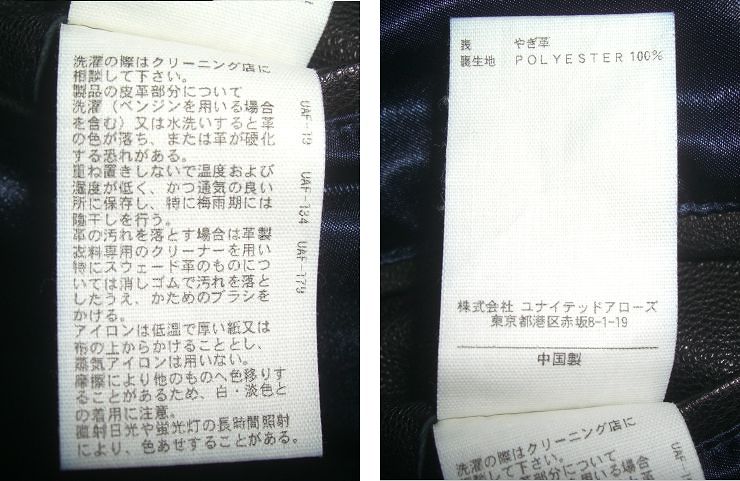 洗濯の際はクリーニング店に
相談して下さい。
製品の皮革部分について
洗濯（ベンジンを用いる場合
を含む）又は水洗いすると革
の色が落ち、または革が硬化
する恐れがある。
重ね置きしないで温度および
湿度が低く、かつ通気の良い
所に保存し、特に梅雨期には
陰干しを行う。
革の汚れを落とす場合は革製
衣料専用のクリーナーを用い
特にスウェード革のものにつ
いては消しゴムで汚れを落と
したうえ、かためのブラシを
かける。
アイロンは低温で厚い紙又は
布の上からかけることとし、
蒸気アイロンは用いない。
摩擦により他のものへ色移りす
ることがあるため、白・淡色と
の着用に注意。
直射日光や蛍光灯の長時間照射
により、色あせすることがある。
UAF-19
UAF-134
UAF-179
表 やぎ革
裏生地 POLYESTER 100%
株式会社 ユナイテッドアローズ
東京都港区赤坂8-1-19
中国製
洗濯の際はクリーニング店に
談して下さい。
の皮革部分について
を用いる場合
UAF-1